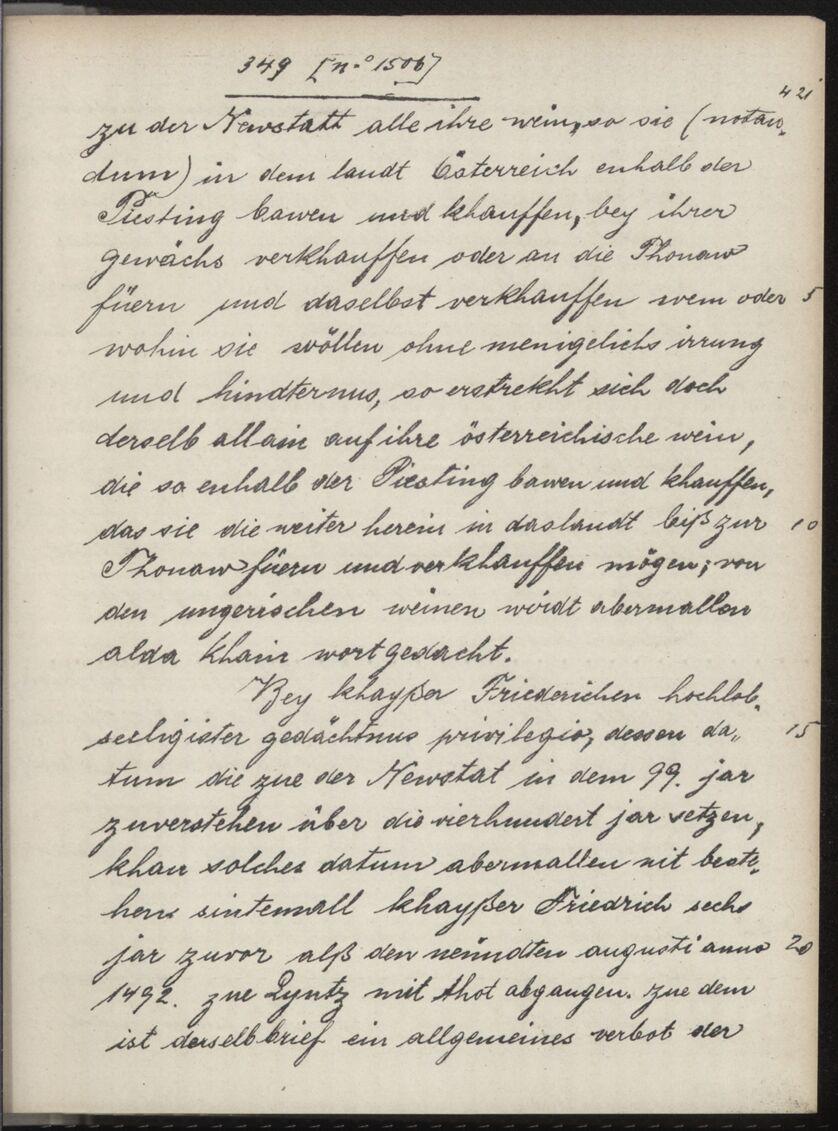 349 [n.o 1506]
421
zu der Newstatt alle ihre wein, so sie (notan-
dum) in dem landt Österreich enhalb der
Piesting bawen und khauffen, bey ihrer
gewächs verkhauffen oder an die Thonaw
füern und daselbst verkhauffen wem oder 5
wohin sie wöllen ohne menigelichs irrung
und hindternus, so erstrekht sich doch
derselb allain auf ihre österreichische wein,
die so enhalb der Piesting bawen und khauffen,
das sie die weiter herein in das landt biß zur 10
Thonaw füern und verkhauffen mögen; von
den ungerischen weinen würdt abermallen
alda khain wort gedacht.
Bey khayßer Friederichen hochlob-
seeligister gedächtnus privilegio, dessen da-
15
tum die zue der Newstat in dem 99. jar
zuverstehen über die vierhundert jar setzen,
khan solches datum abermallen nit beste-
hen sintemall khayßer Friedrich sechs
jar zuvor alß den neündten augusti anno 20
1492. zue Lyntz mit thot abgangen. zue dem
ist derselb brief ein allgemeines verbot der